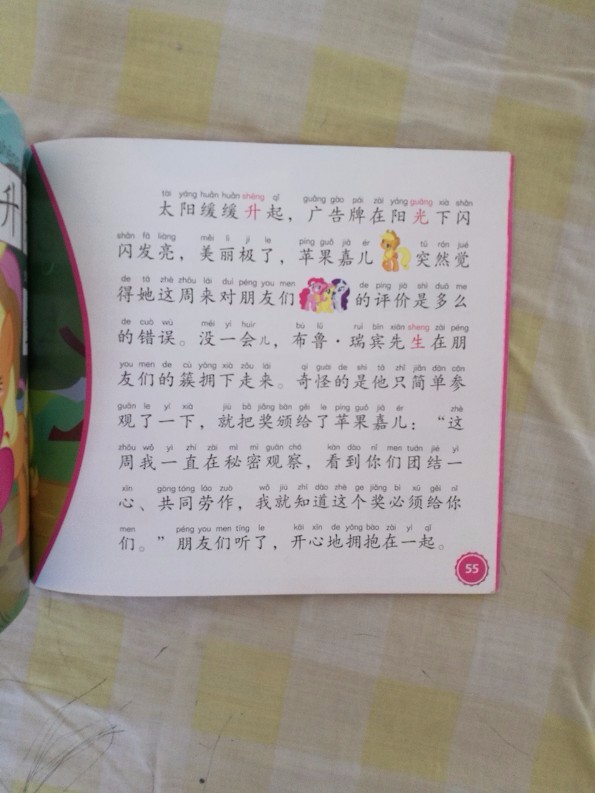 升
tài yáng huǎn huǎn shēng qǐ guǎng gào pái zài yáng guāng xià shǎn
太阳缓缓升起，广告牌在阳光下闪
shǎn fā liàng měi lì jí le píng guǒ jiā ér tū rán jué
闪发亮，美丽极了，苹果嘉儿突然觉
de tā zhè zhōu lái duì péng you men de píng jià shì duō me
得她这周来对朋友们的评价是多么
de cuò wù méi yí huìr bù lǔ ruì bīn xiān sheng zài péng
的错误。没一会儿，布鲁·瑞宾先生在朋
you men de cù yōng xià zǒu lái qí guài de shì tā zhǐ jiǎn dān cān
友们的簇拥下走来。奇怪的是他只简单参
guān le yí xià jiù bǎ jiǎng bān gěi le píng guǒ jiā ér zhè
观了一下，就把奖颁给了苹果嘉儿：“这
zhōu wǒ yì zhí zài mì mì guān chá kàn dào nǐ men tuán jié yì
周我一直在秘密观察，看到你们团结一
xīn gòng tóng láo zuò wǒ jiù zhī dào zhè ge jiǎng bì xū gěi nǐ
心、共同劳作，我就知道这个奖必须给你
men péng you men tīng le kāi xīn de yōng bào zài yì qǐ
们。”朋友们听了，开心地拥抱在一起。
55